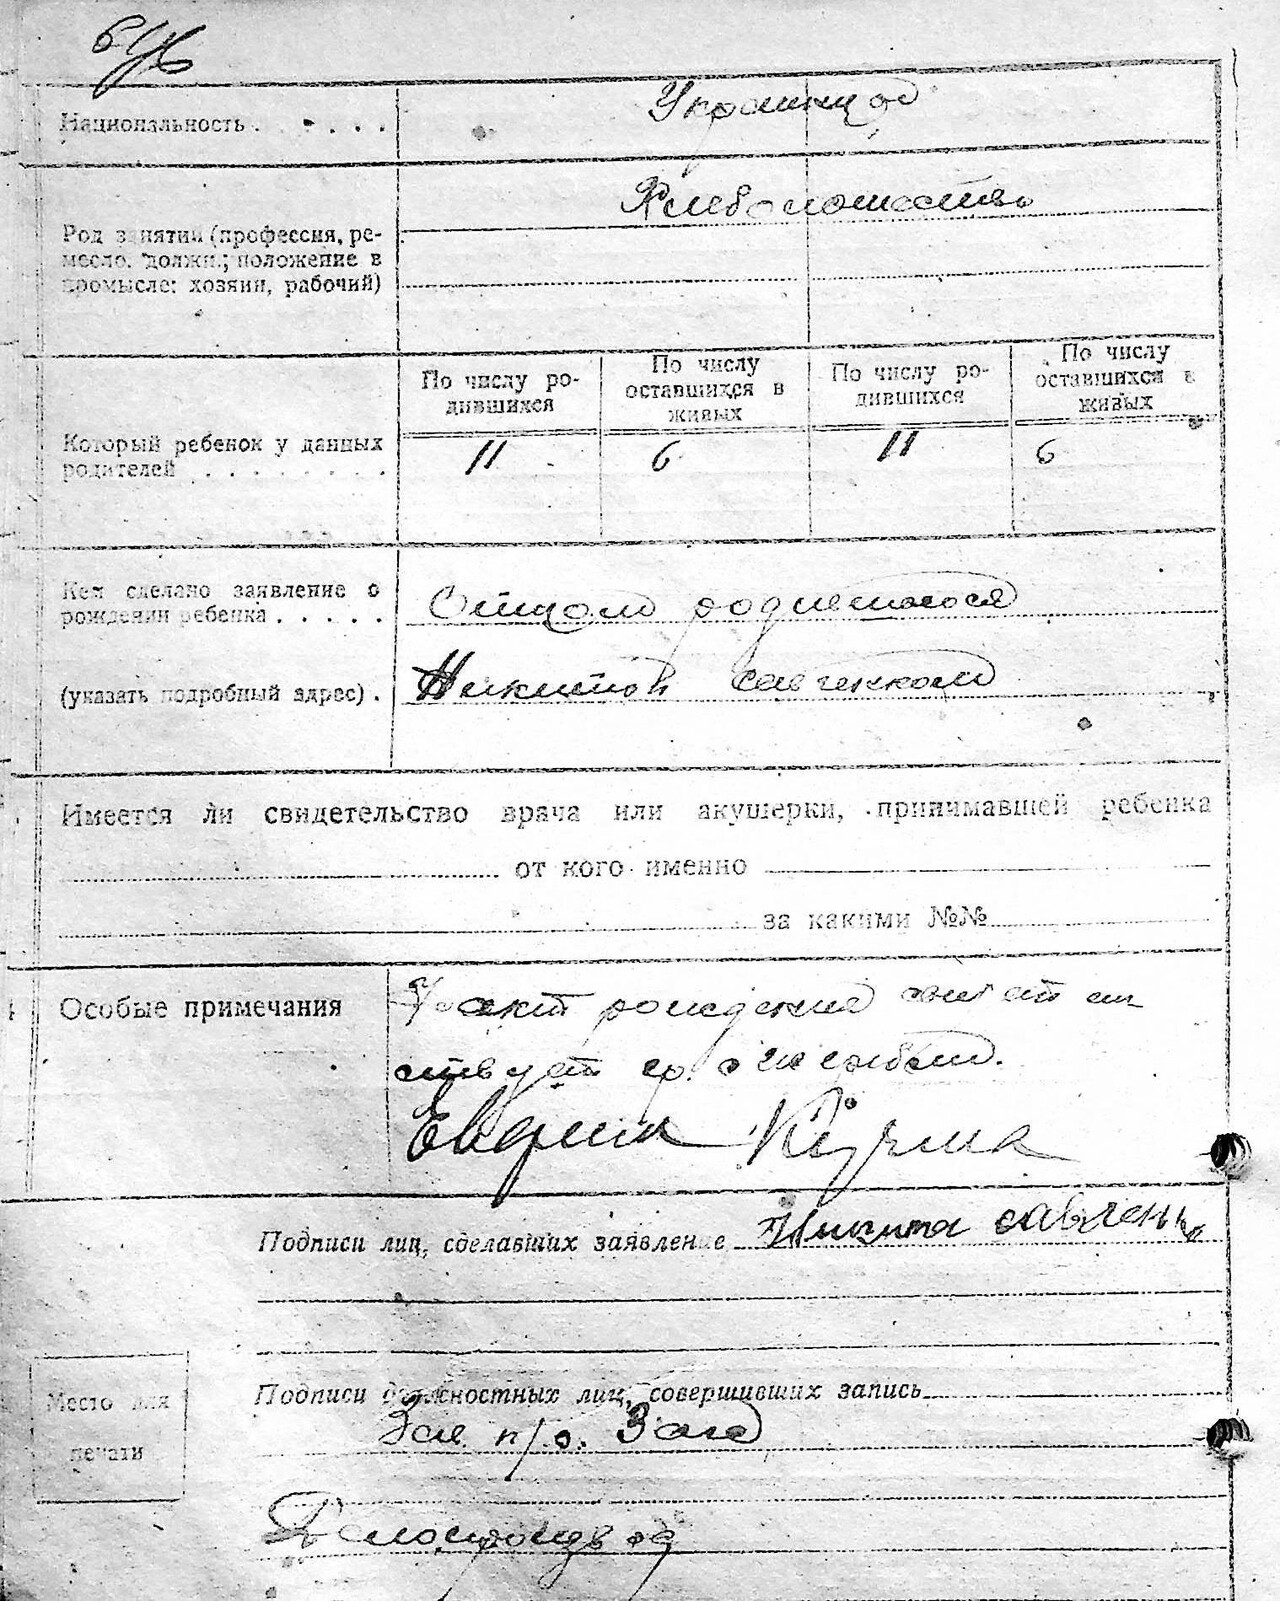 Национальность . . . . .
Украинцы
Род занятий (профессия, ре-
месло, должн.; положение в
промысле: хозяин, рабочий)
Хлебопашество
Который ребенок у данных
родителей . . . . . . . . .
По числу ро-
дившихся
По числу
оставшихся в
живых
По числу ро-
дившихся
По числу
оставшихся в
живых
11 6 11 6
Кем сделано заявление о
рождении ребенка . . . . .
Отцом родившегося
(указать подробный адрес) .
Никитой Савченком
Имеется ли свидетельство врача или акушерки, принимавшей ребенка
от кого именно
за какими №№
Особые примечания
Факт рождения
гр.
Кучма
Подписи лиц, сделавших заявление Никита Савченко
Подписи должностных лиц, совершивших запись
Зав. п/о. Загс
Делопроизвод
Место для
печати